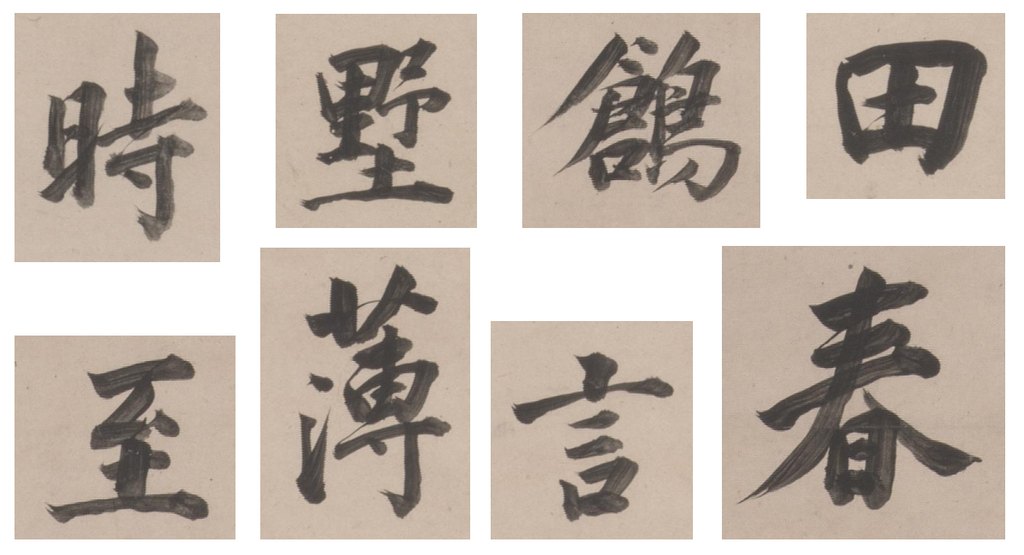 時 墅 鶬 田
至 薄 言 春